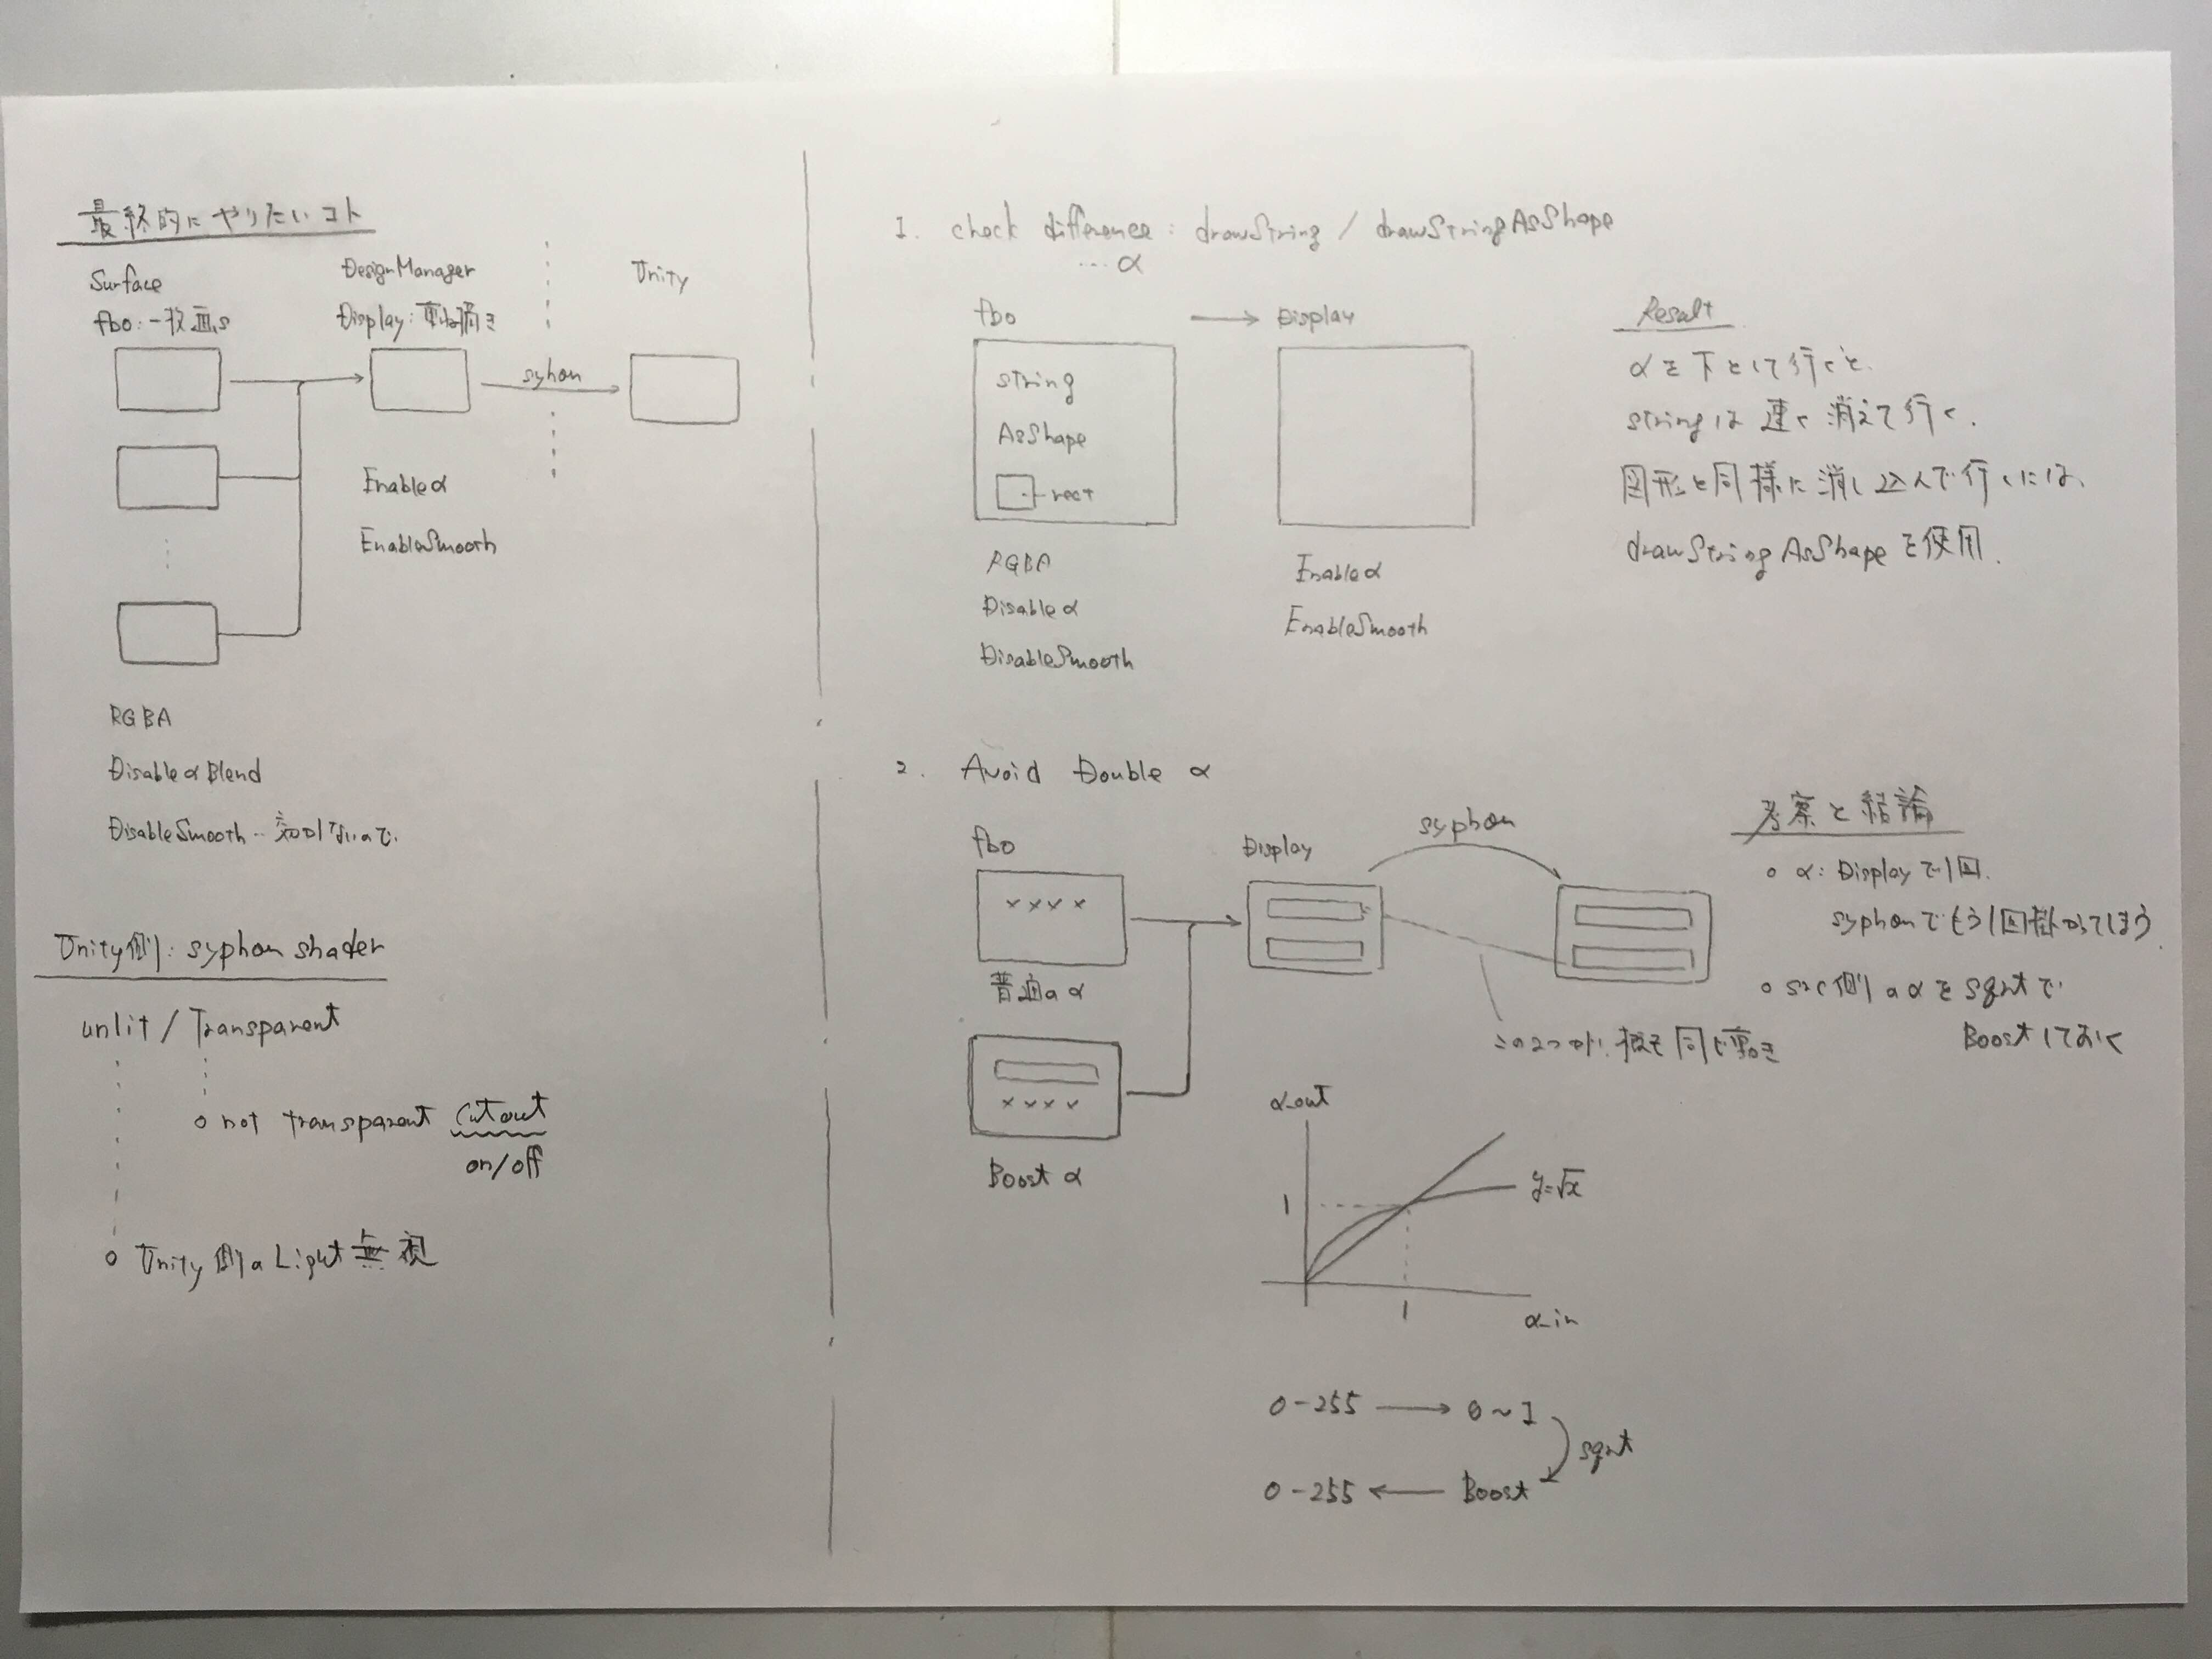 最終的にやりたいコト
Surface
fbo: 一枚画s
DesignManager
Display: 重ね描き
Unity
syhon
Enable α
EnableSmooth
RGBA
Disable α Blend
DisableSmooth ‥ ないので.
Unity側: syphon shader
unlit / Transparent
○ not transparent cutout
on/off
○ Unity側のLight無視
1. check difference: drawString / drawStringAsShape
... α
fbo → Display
string
AsShape
rect
RGBA
Disable α
DisableSmooth
Enable α
EnableSmooth
Result
αを下として行くと、
stringは速く消えて行く.
図形と同様に消し込んで行くには、
drawStringAsShapeを使用.
2. Avoid Double α
fbo
××××
普通のα
××××
Boost α
Display
syphon
この2つが、概ね同じ動き
考察と結論
○ α: Displayで1回.
syphonでもう1回掛かってしまう.
○ src側のαをsqrtで
Boostしておく
α_out
1
y=√x
1
α_in
0-255 → 0~1
sqrt
0-255 ← Boost